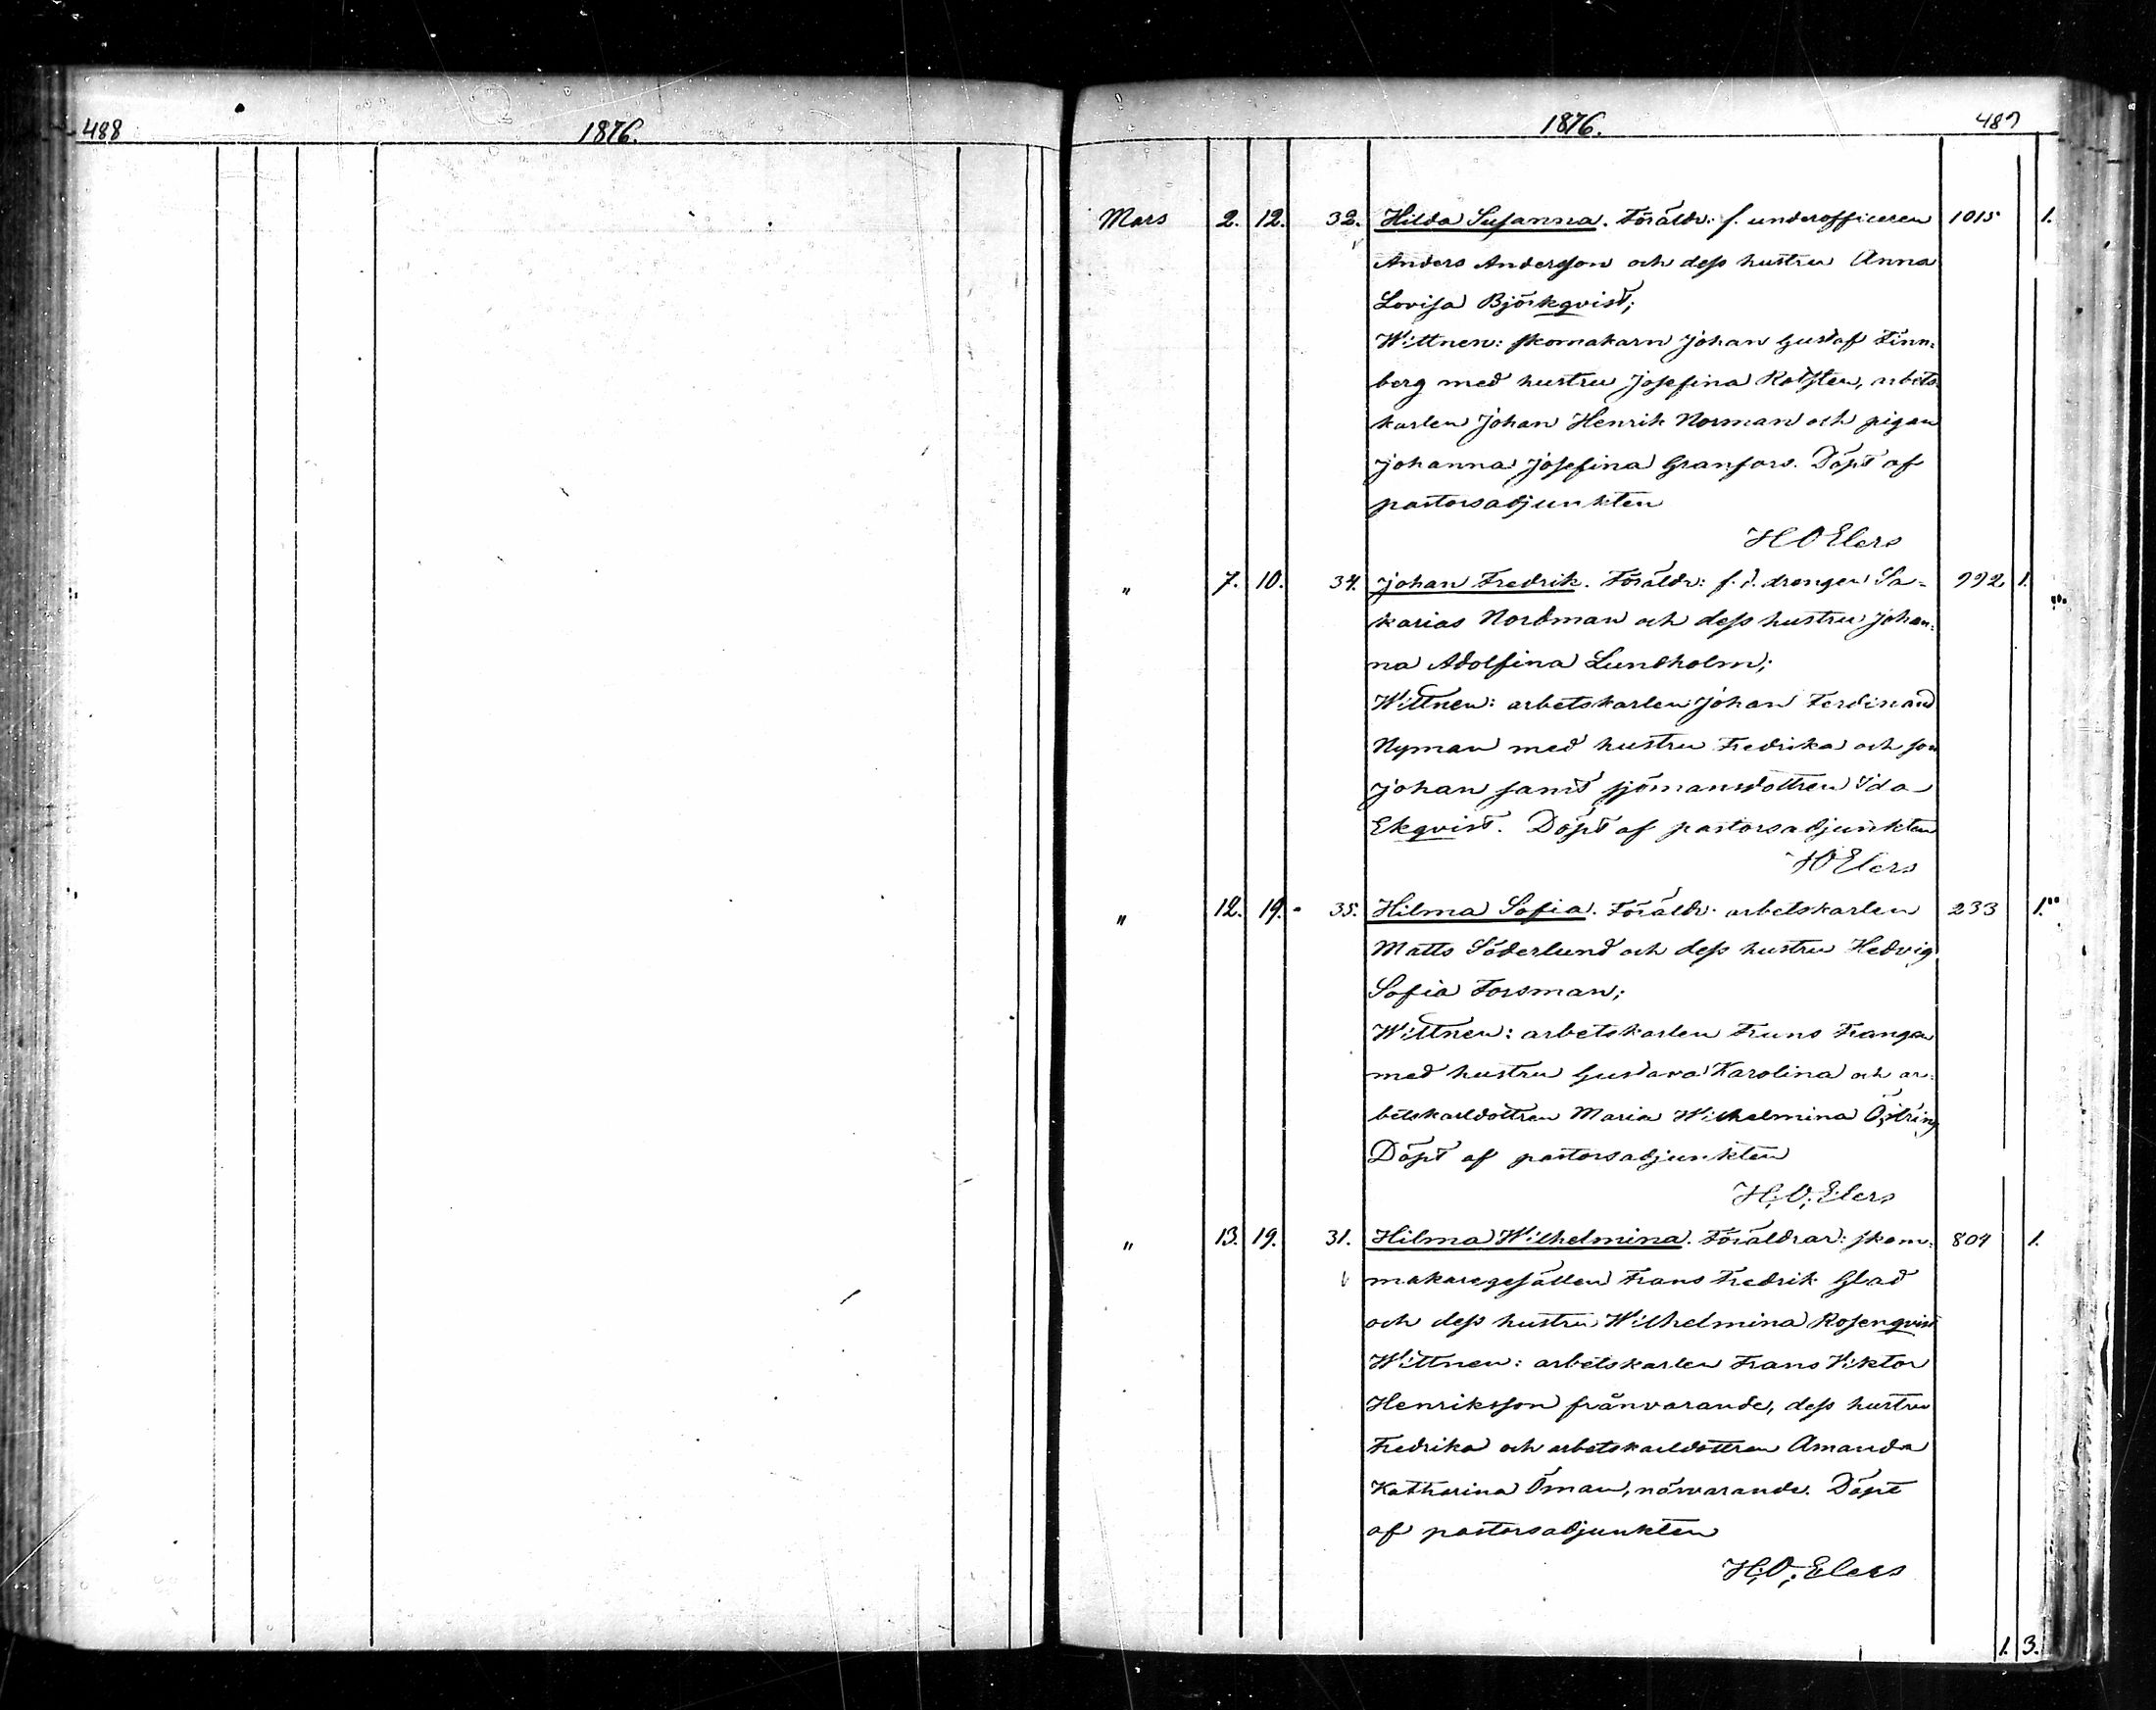 488
1876.
1876.
489
Mars 2. 12. 32. Hilda Susanna. Föräldr: f. underofficeren 1015 1.
Anders Andersson och dess hustru Anna
Lovisa Björkqvist;
Wittnen: skomakarn Johan Gustaf Finn=
berg med hustru Josefina Rotsten, arbets
karlen Johan Henrik Norman och pigan
Johanna Josefina Granfors. Döpt af
pastorsadjunkten
H O Elers
" 7. 10. 34. Johan Fredrik. Föräldr: f. d. drengen Sa= 992 1.
karias Nordman och dess hustru Johan=
na Adolfina Lundholm;
Wittnen: arbetskarlen Johan Ferdinand
Nyman med hustru Fredrika och son
Johan samt sjömansdottren Ida
Ekqvist. Döpt af pastorsadjunkten
H O Elers
" 12. 19. 35. Hilma Sofia. Föräldr: arbetskarlen 233 1.
Matts Söderlund och dess hustru Hedvig
Sofia Forsman;
Wittnen: arbetskarlen Frans
med hustru Gustava Karolina och ar=
betskarldottren Maria Wilhelmina
Döpt af pastorsadjunkten
H. O. Elers
" 13. 19. 31. Hilma Wilhelmina. Föräldrar: skom= 1.
makaregesällen Frans Fredrik Glad
och dess hustru Wilhelmina Rosenqvist
Wittnen: arbetskarlen Frans Viktor
Henriksson frånvarande, dess hustru
Fredrika och arbetskarldottren Amanda
Katharina Öman, närvarande. Döpt
af pastorsadjunkten
H. O. Elers
1. 3.